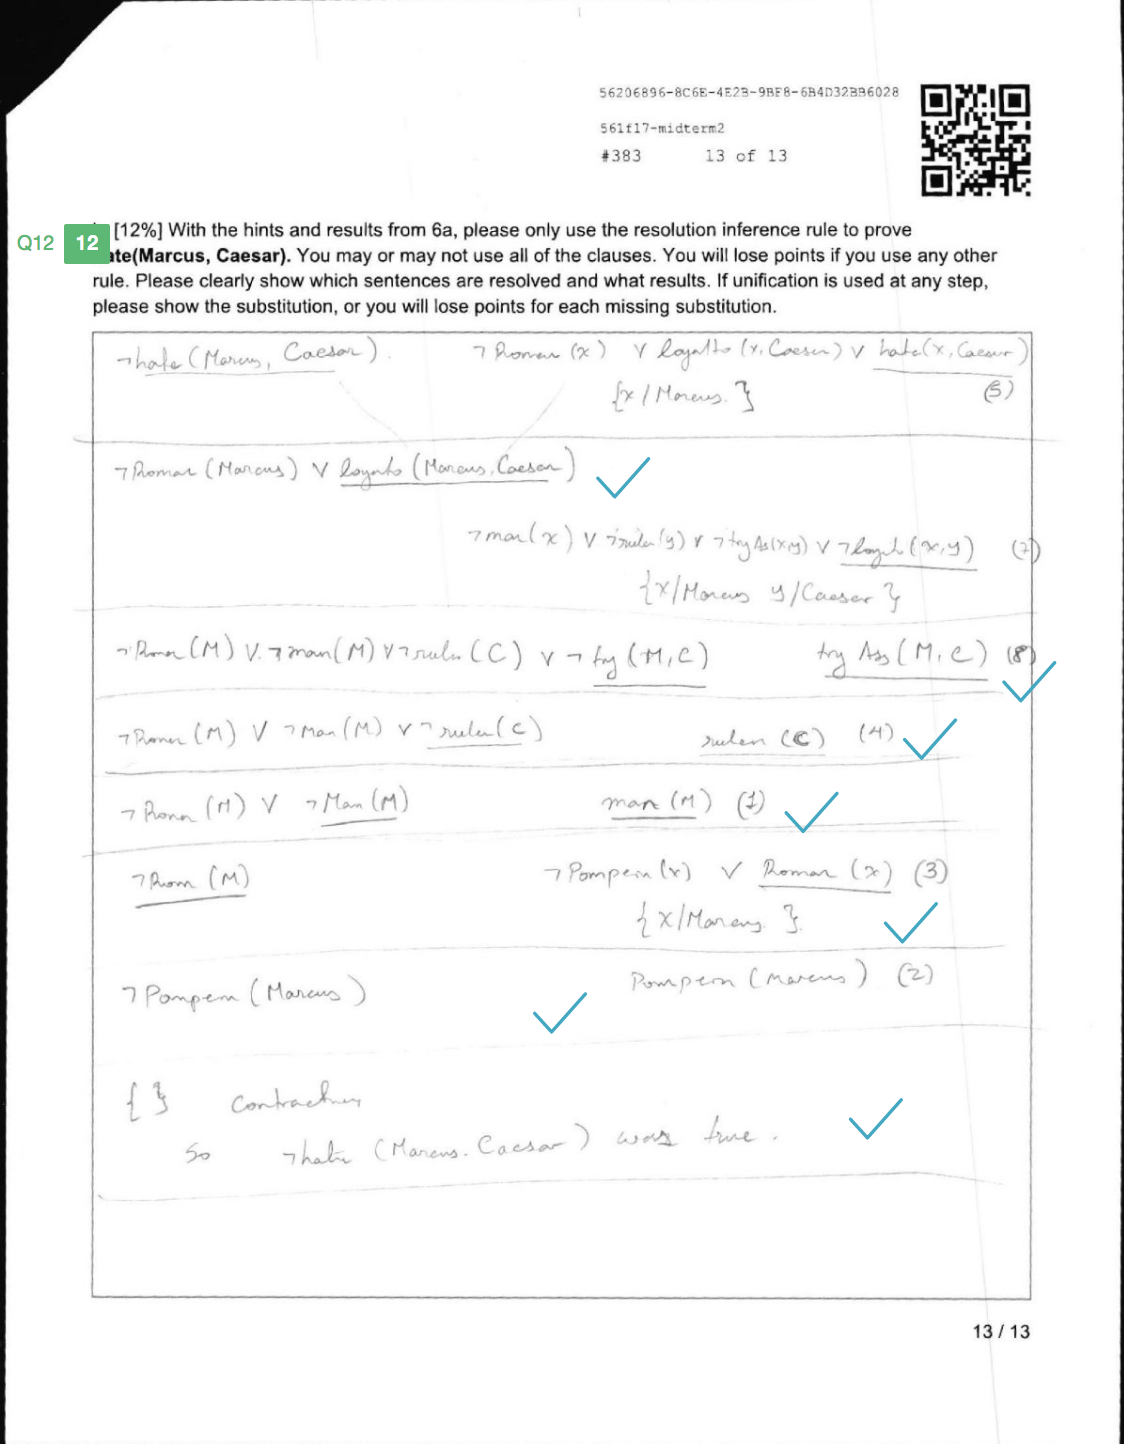 56206896-8C6E-4E2B-9BF8-6B4D32BB6028
561f17-midterm2
#383 13 of 13
Q12 12 [12%] With the hints and results from 6a, please only use the resolution inference rule to prove
ate(Marcus, Caesar). You may or may not use all of the clauses. You will lose points if you use any other
rule. Please clearly show which sentences are resolved and what results. If unification is used at any step,
please show the substitution, or you will lose points for each missing substitution.
¬hate (Marcus, Caesar). ¬Roman (x) ∨ loyalto (x, Caesar) ∨ hate(x, Caesar)
{x / Marcus. } (5)
¬Roman (Marcus) ∨ loyalto (Marcus, Caesar)
¬man(x) ∨ ¬ruler(y) ∨ ¬tryAs(x,y) ∨ ¬loyalt(x,y) (7)
{x/Marcus y/Caesar }
¬Roman (M) ∨ ¬man(M) ∨ ¬ruler (C) ∨ ¬try (M, C) try Ass (M, C) (8)
¬Roman (M) ∨ ¬Man (M) ∨ ¬ruler (C) ruler (C) (4)
¬Roman (M) ∨ ¬Man (M) man (M) (1)
¬Rom (M) ¬Pompein (x) ∨ Roman (x) (3)
{ x/Marcus. }.
¬Pompein (Marcus) Pompein (Marcus) (2)
{ } contradiction
So ¬hate (Marcus. Caesar) was true.
13 / 13